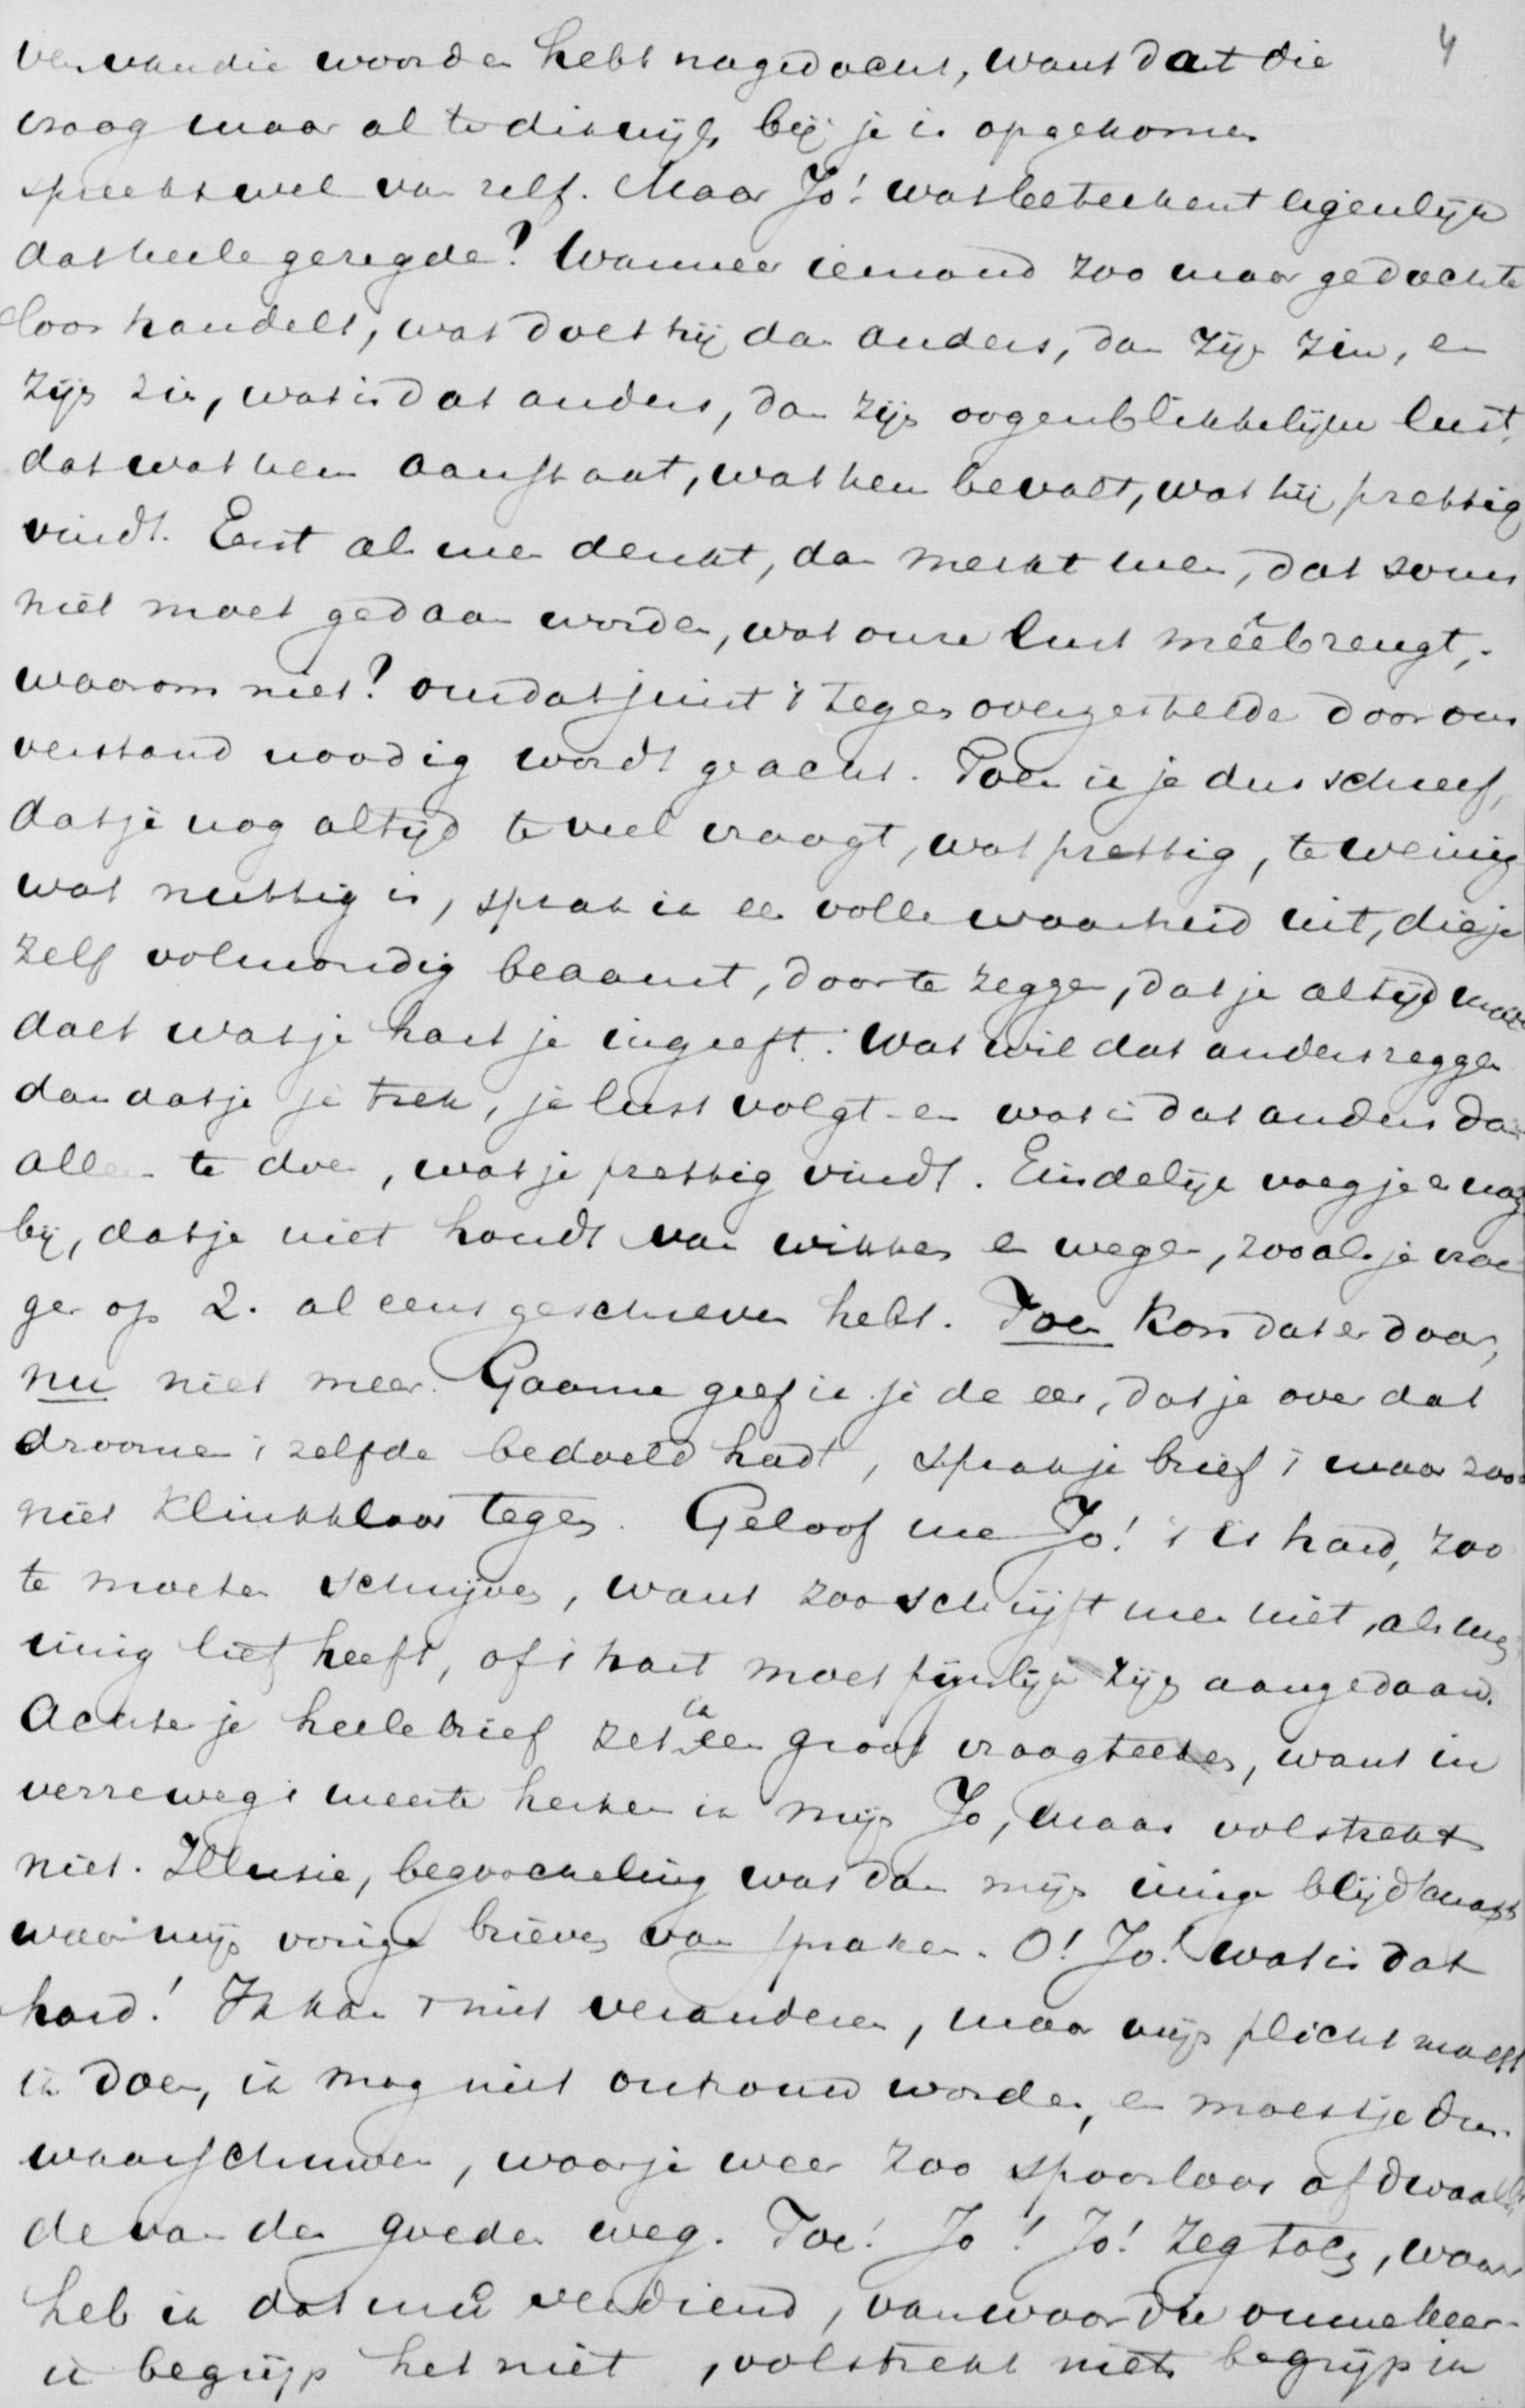 4
ver van die woorden hebt nagedacht, want dat die
vraag maar al te dikwijls bij je is opgekomen
spreekt wel van zelf. Maar Jo! wat beteekent eigenlijk
dat heele gezegde? Wanneer iemand zoo maar gedachte
loos handelt, wat doet hij dan anders, dan zijn zin, en
zijn zin, wat is dat anders, dan zijn oogenblikkelijke lust,
dat wat hem aanstaat, wat hem bevalt, wat hij prettig
vindt. Eerst als men denkt, dan merkt men, dat soms
niet moet gedaan worden, wat onze lust meêbrengt,
waarom niet? omdat juist 't tegenovergestelde door ons
verstand noodig wordt geacht. Toen ik je dus schreef,
dat je nog altijd te veel vraagt, wat prettig, te weinig
wat nuttig is, sprak ik een volle waarheid uit, die je
zelf volmondig beaamt, door te zeggen, dat je altijd maar
doet wat je hart je ingeeft. Wat wil dat anders zeggen
dan dat je je trek, je lust volgt en wat is dat anders dan
alleen te doen, wat je prettig vindt. Eindelijk voeg je er nog
bij, dat je niet houdt van wikken en wegen, zooals je vroe
ger op 2. al eens geschreven hebt. Toen kon dat er door,
nu niet meer. Gaarne geef ik je de eer, dat je over dat
droomen 't zelfde bedoeld hadt, sprak je brief 't maar zoo
niet klinkklaar tegen. Geloof me Jo! 't is hard, zoo
te moeten schrijven, want zoo schrijft men niet, als men
innig lief heeft, of 't hart moet pijnlijk zijn aangedaan.
Achter je heele brief zet ik een groot vraagteeken, want in
verreweg 't meeste herken ik mijn Jo, maar volstrekt
niet. Illusie, begoocheling was dan mijn innige blijdschap
waar mijn vorige brieven van spraken. O! Jo! wat is dat
hard! Ik kan 't niet veranderen, maar mijn plicht moest
ik doen, ik mag niet ontrouw worden, en moest je dus
waarschuwen, waar je weer zoo spoorloos afdwaal
de van den goeden weg. Toe! Jo! Jo! zeg toch, waar
heb ik dat nu verdiend, van waar die ommekeer
ik begrijp het niet, volstrekt niets begrijp ik